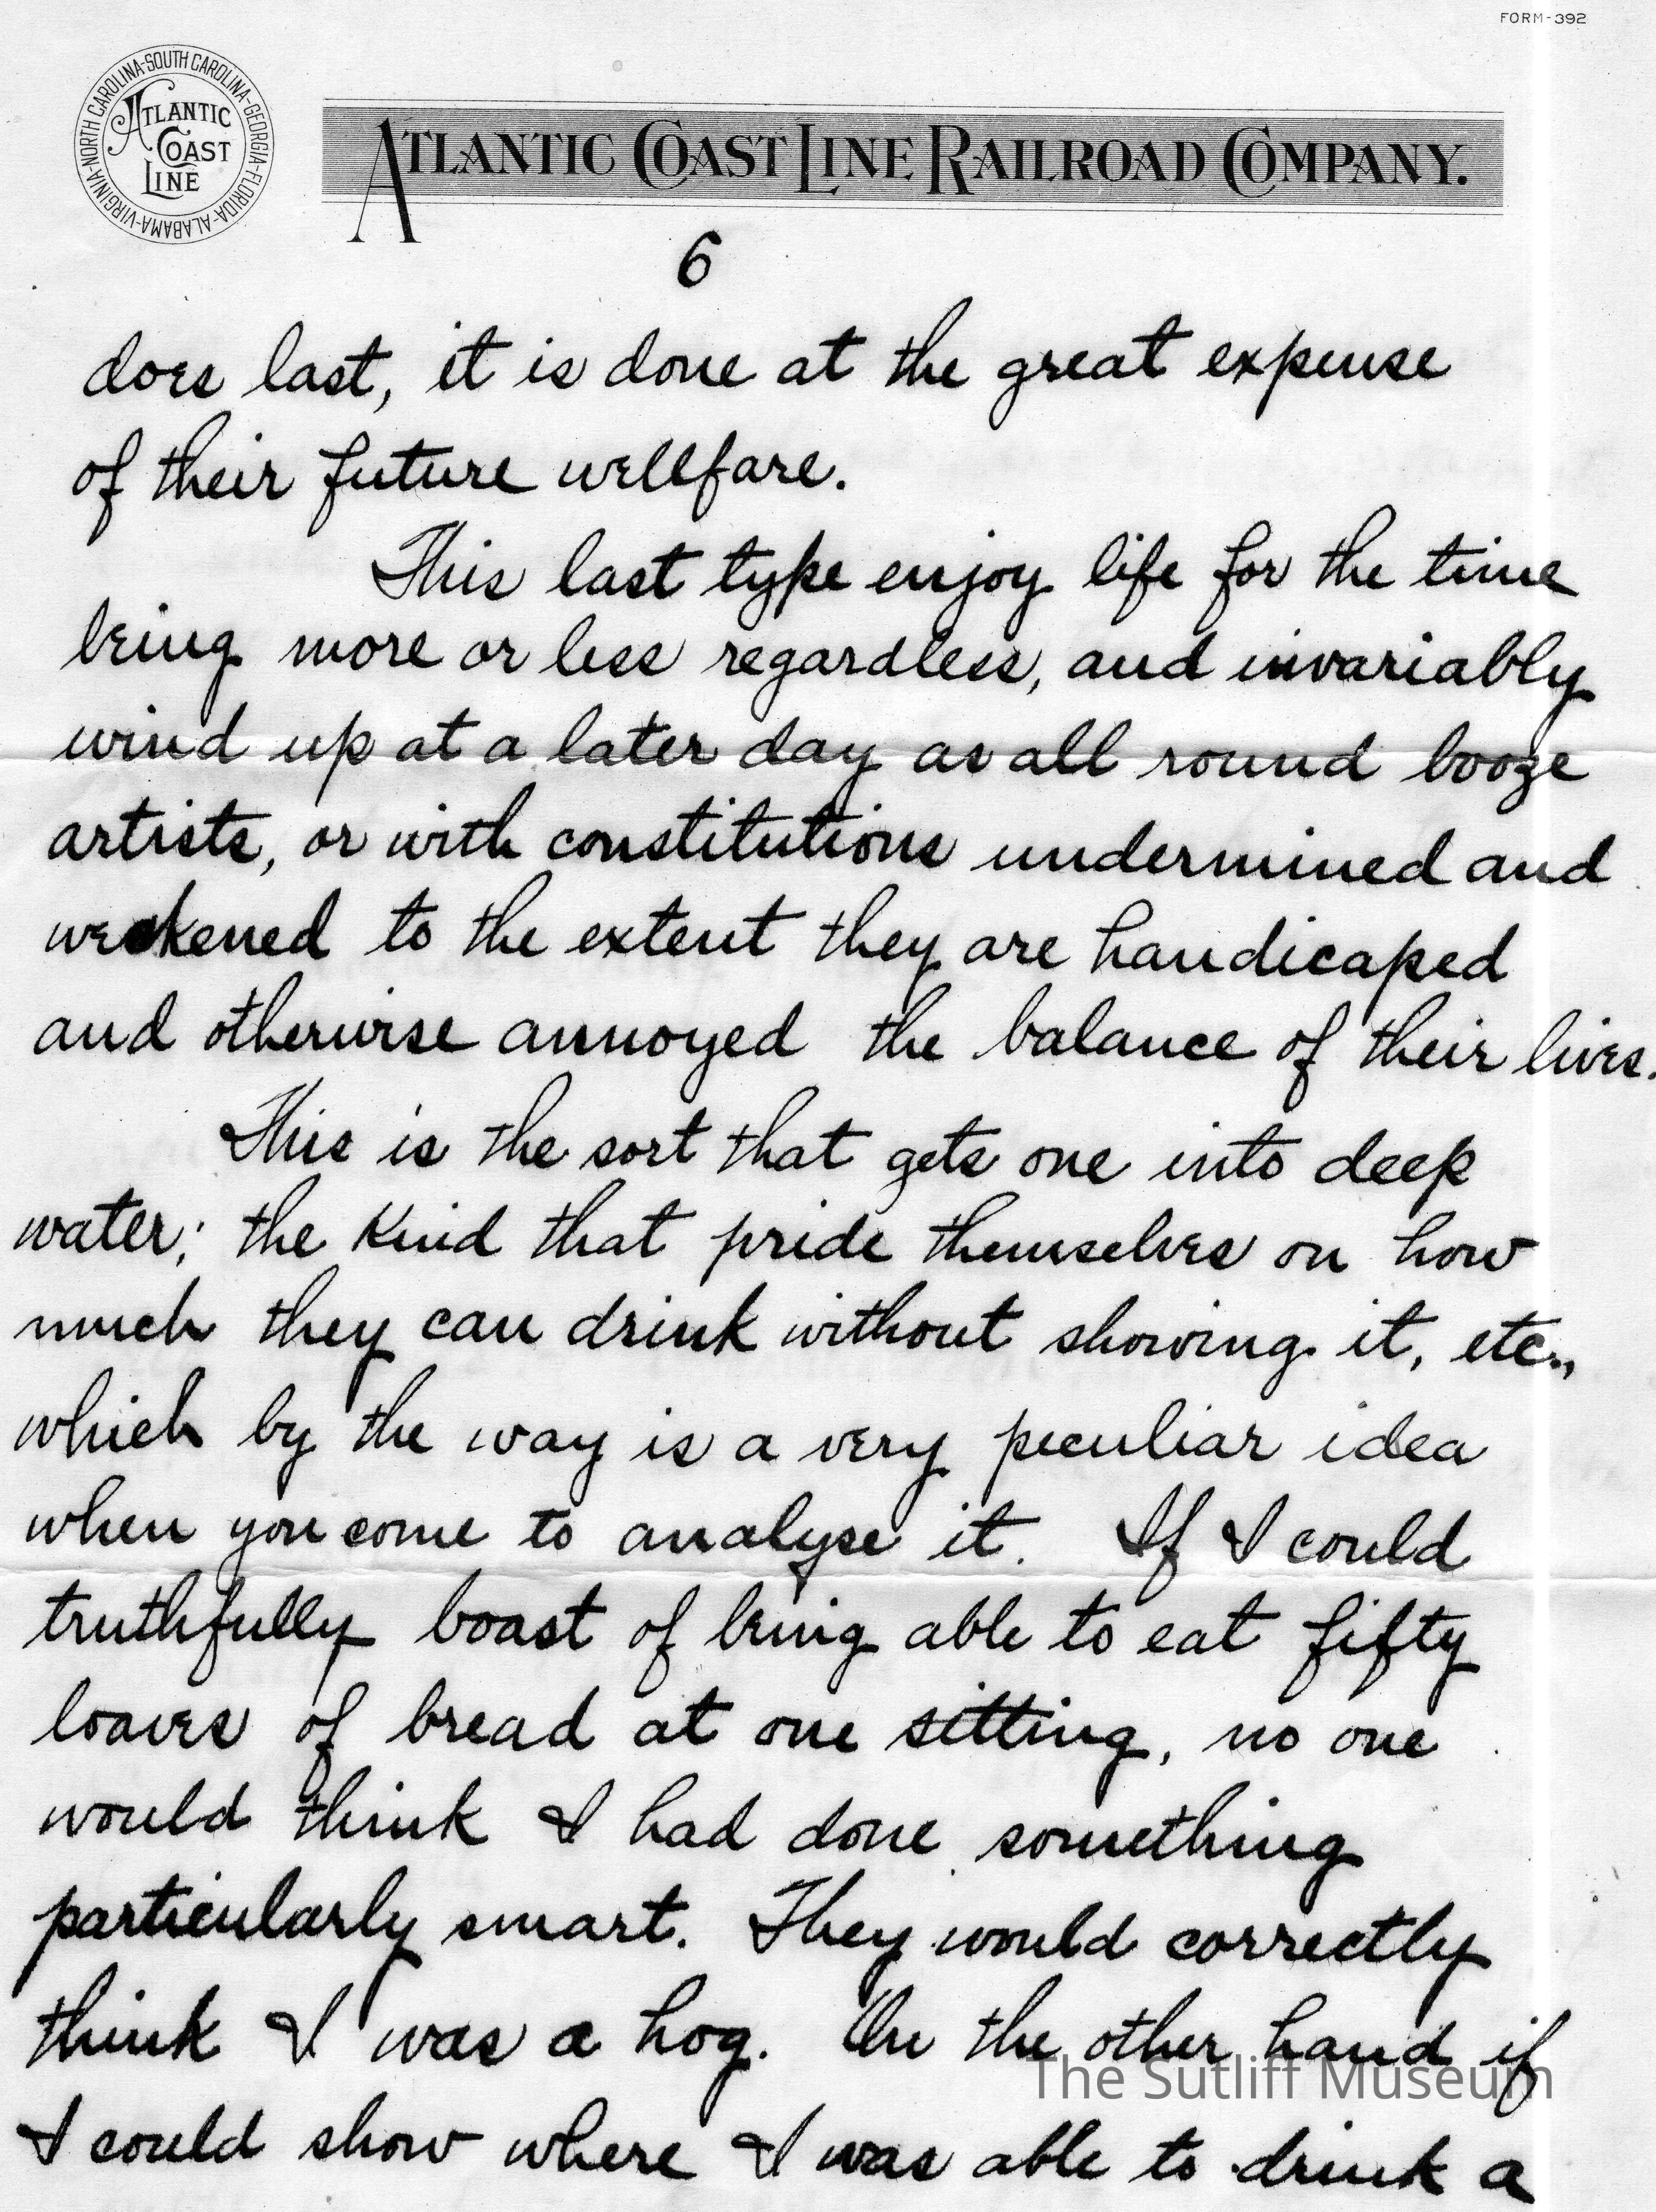 FORM-392
VIRGINIA-NORTH CAROLINA-SOUTH CAROLINA-GEORGIA-FLORIDA-ALABAMA-
ATLANTIC
COAST
LINE
ATLANTIC COAST LINE RAILROAD COMPANY.
6
does last, it is done at the great expense
of their future wellfare.
This last type enjoy life for the time
being more or less regardless, and invariably
wind up at a later day as all round booze
artists, or with constitutions undermined and
weakened to the extent they are handicaped
and otherwise annoyed the balance of their lives.
This is the sort that gets one into deep
water; the kind that pride themselves on how
much they can drink without showing it, etc.,
which by the way is a very peculiar idea
when you come to analyse it. If I could
truthfully boast of being able to eat fifty
loaves of bread at one sitting, no one
would think I had done something
particularly smart. They would correctly
think I was a hog. On the other hand if
The Sutliff Museum
I could show where I was able to drink a